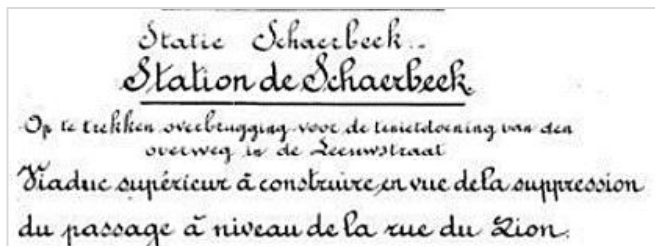 Statie Schaerbeek.
Station de Schaerbeek
Op te trekken overbrugging voor de tenietdoening van den
overweg in de Leeuwstraat
Viaduc supérieur à construire, en vue de la suppression
du passage à niveau de la rue du Lion.